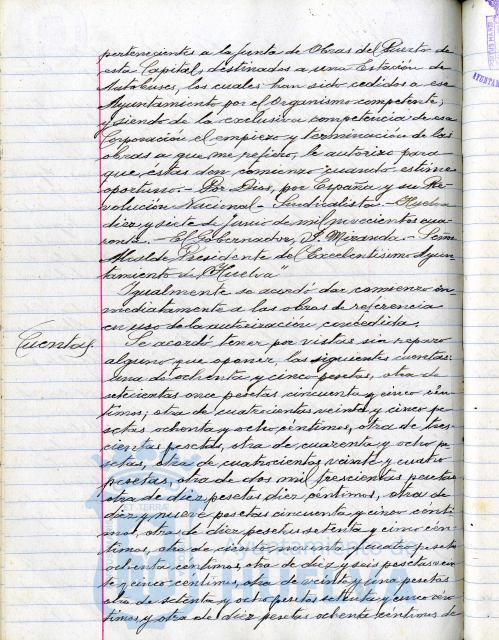 pertenecientes a la Junta de Obras del Puerto de
esta Capital, destinados a una Estación de
Autobuses, los cuales han sido cedidos a ese
Ayuntamiento por el Organismo competente,
y siendo de la exclusiva competencia de esa
Corporación el empiezo y terminación de las
obras a que me refiero, le autorizo para
que éstas den comienzo cuando estime
oportuno.- Por Dios, por España y su Re-
volución Nacional-Sindicalista.- Huelva
diez y siete de Junio de mil novecientos cua-
renta.- El Gobernador, J. Miranda.- Señor
Alcalde Presidente del Excelentísimo Ayun-
tamiento de Huelva"
Igualmente se acordó dar comienzo in-
mediatamente a las obras de referencia
en uso de la autorización concedida.
Cuentas
Se acordó tener por vistas sin reparo
alguno que oponer, las siguientes cuentas:
una de ochenta y cinco pesetas, otra de
setecientas once pesetas cincuenta y cinco cén-
timos; otra de cuatrocientas veinte y cinco pe-
setas ochenta y ocho céntimos, otra de tres-
cientas pesetas, otra de cuarenta y ocho pe-
setas, otra de cuatrocientos veinte y cuatro
pesetas, otra de dos mil trescientas pesetas
otra de diez pesetas diez céntimos, otra de
diez y nueve pesetas cincuenta y cinco cénti-
mos, otra de diez pesetas setenta y cinco cén-
timos, otra de ciento noventa pesetas
ochenta céntimos, otra de diez y seis pesetas vein-
te y cinco céntimos, otra de veinte y una pesetas
otra de setenta y ocho pesetas setenta y cinco cén-
timos y otra de diez pesetas ochenta céntimos de
Ayuntamiento de